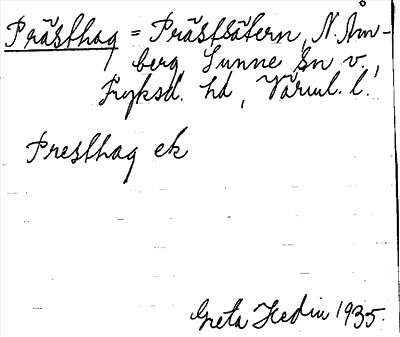 Prästhag = Prästsätern, N. Åm-
berg Sunne sn v.,
Fryksd. hd, Värml. l.
Presthag ek
Greta Hedin 1935.